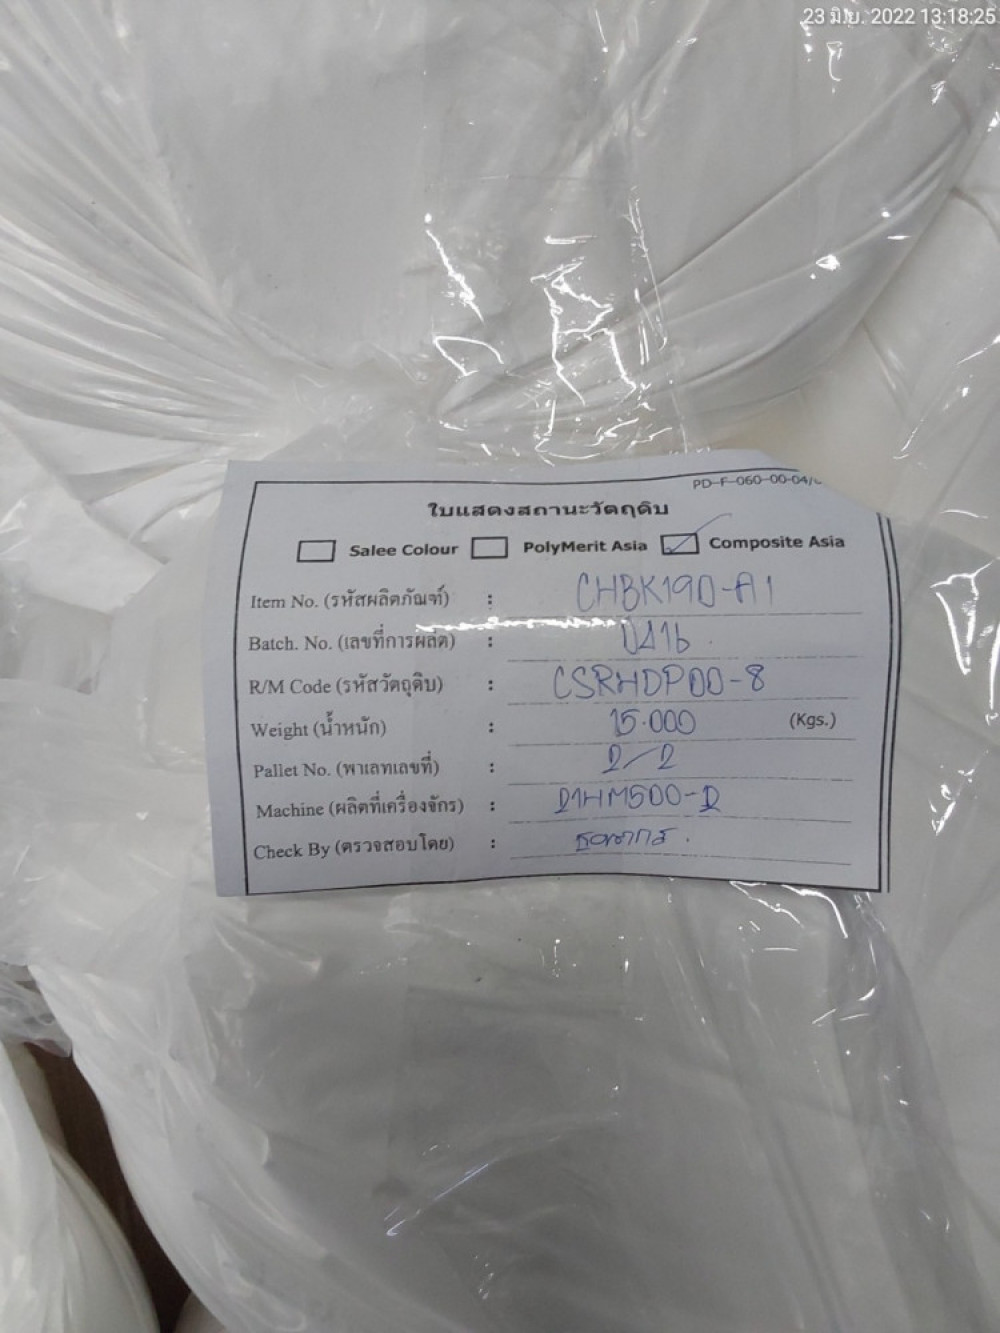 23 มิ.ย. 2022 13:18:25
PD-F-060-00-04/
ใบแสดงสถานะวัตถุดิบ
Salee Colour PolyMerit Asia Composite Asia
Item No. (รหัสผลิตภัณฑ์) : CHBK190-A1
Batch. No. (เลขที่การผลิต) : 0416
R/M Code (รหัสวัตถุดิบ) : CSRHDP00-8
Weight (น้ำหนัก) : 15.000 (Kgs.)
Pallet No. (พาเลทเลขที่) : 2/2
Machine (ผลิตที่เครื่องจักร) : 21HM500-2
Check By (ตรวจสอบโดย) :